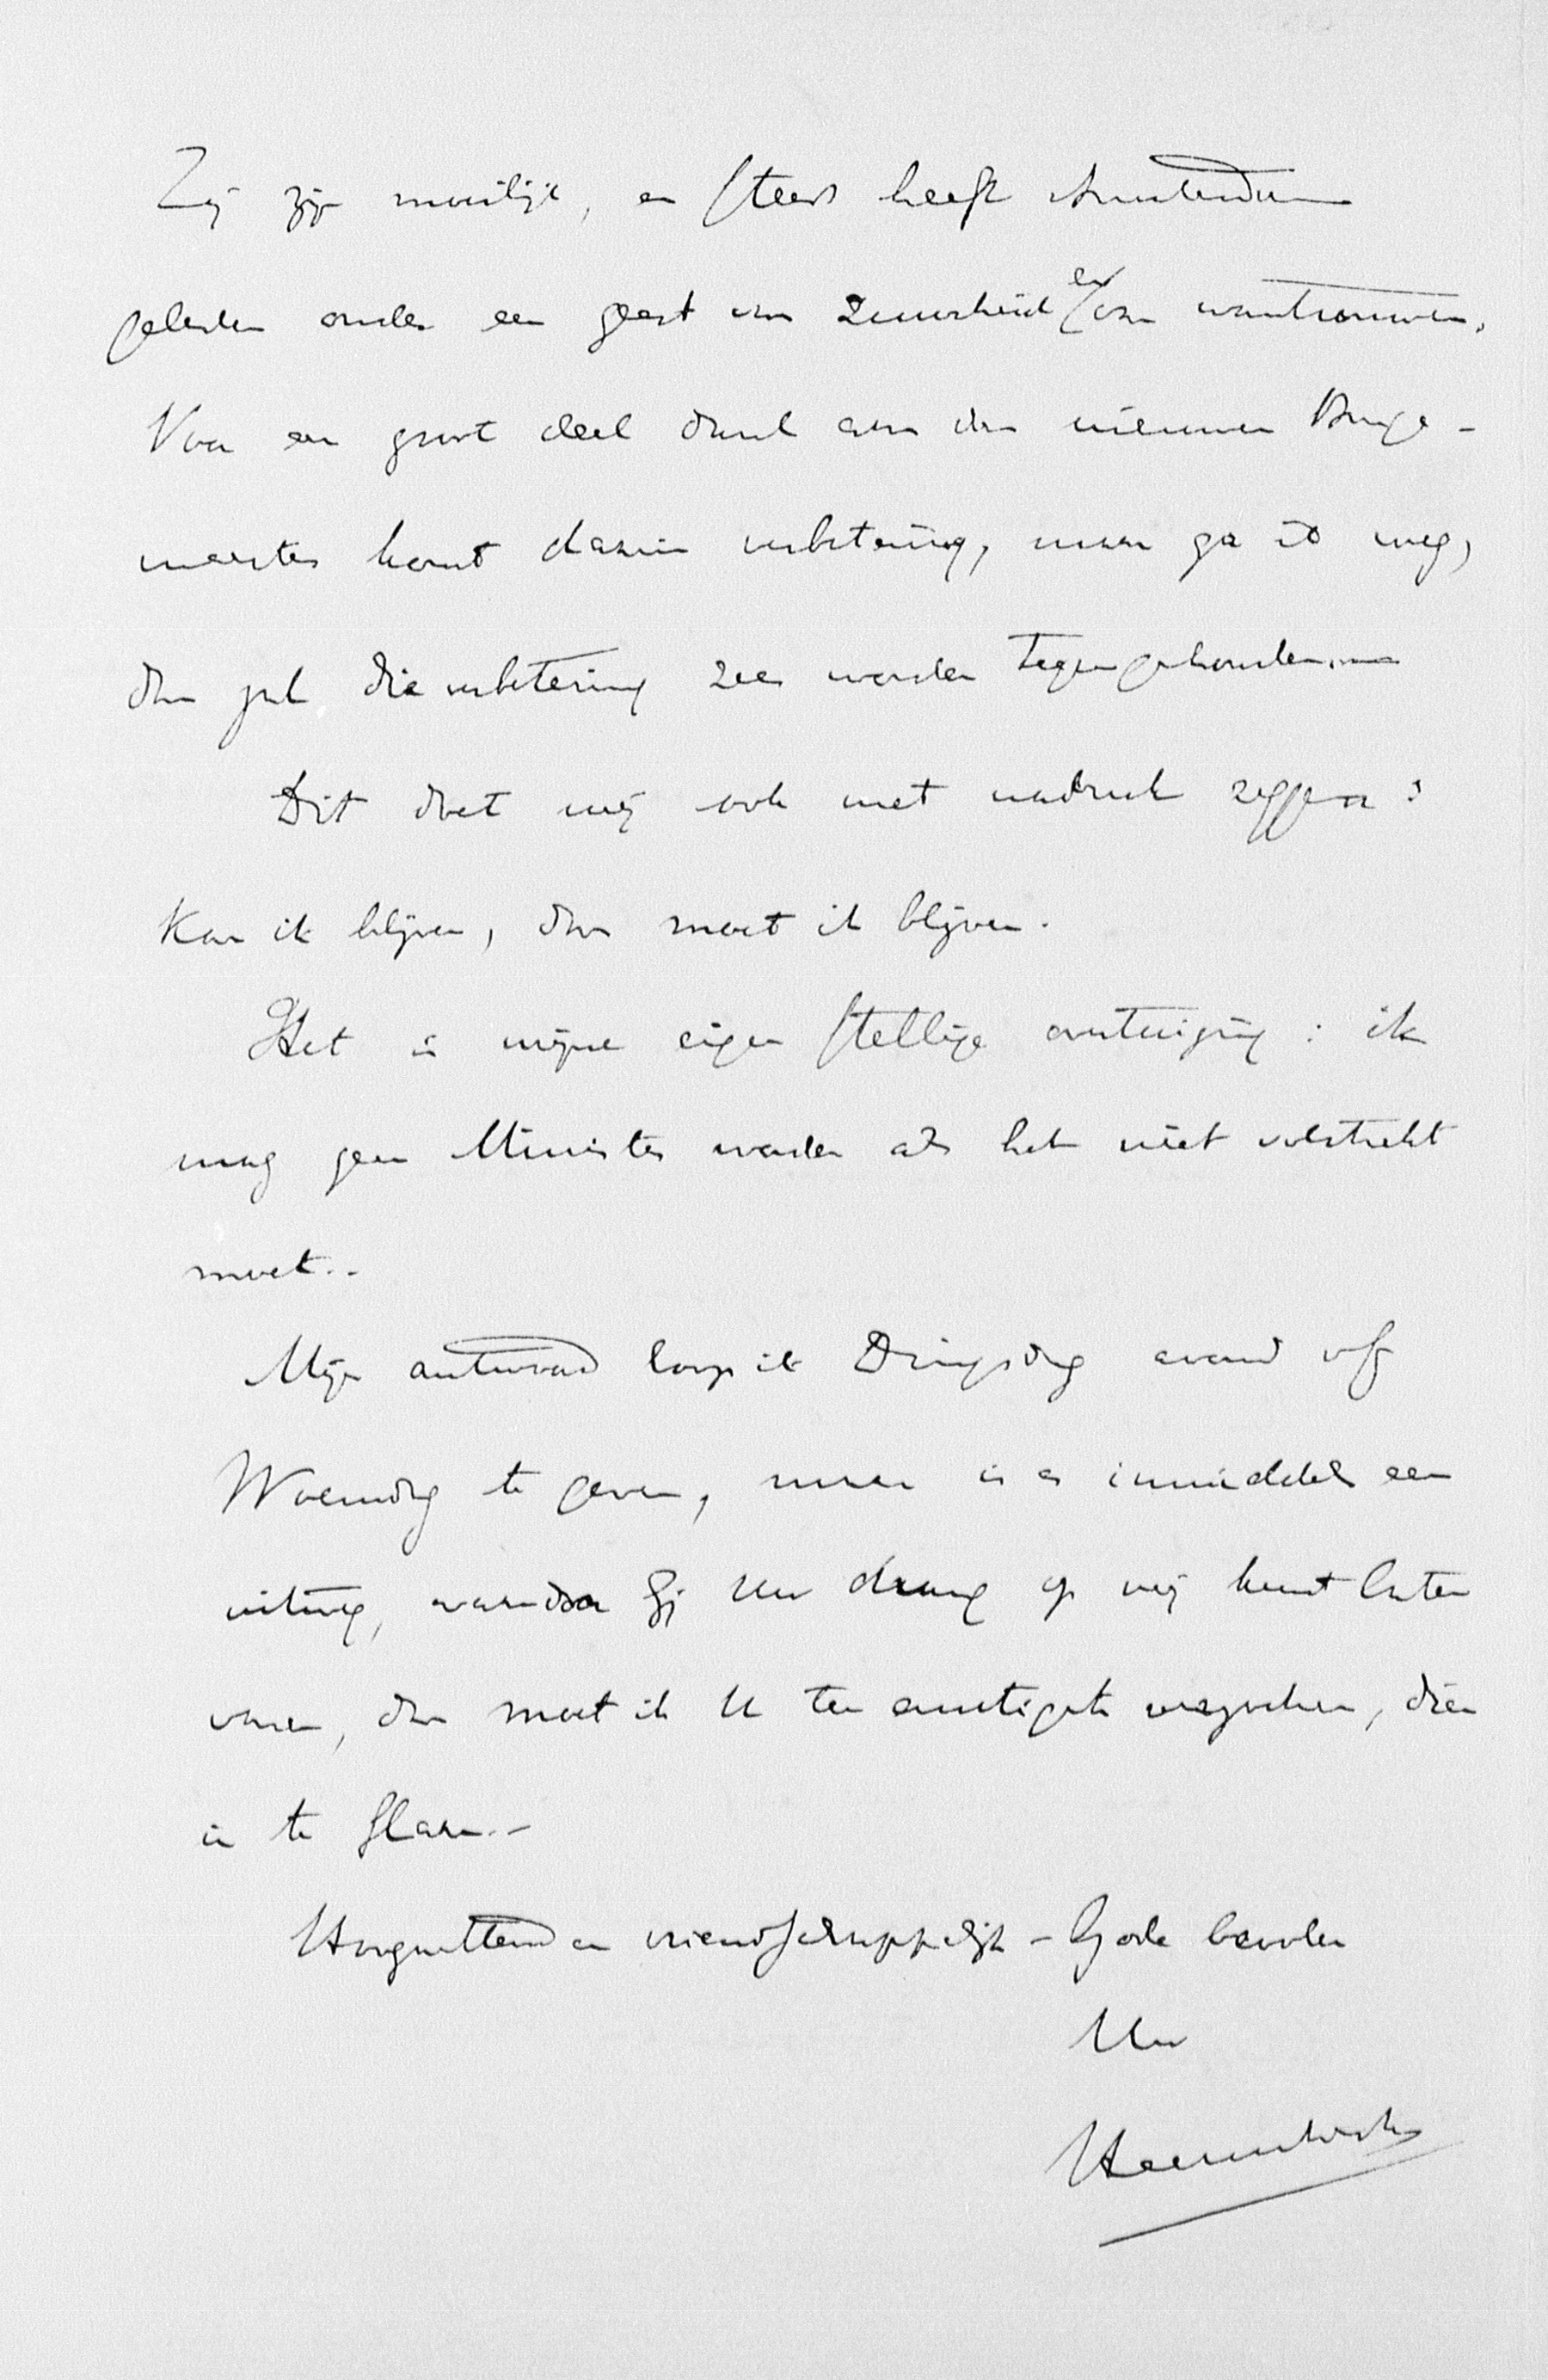 Zij zijn moeilijk, en steeds heeft Amsterdam
geleden onder een geest van zuurheid en van wantrouwen.
Voor een groot deel dank aan den nieuwen Burge-
meester komt daarin verbetering, maar ga ik weg,
dan zal die verbetering zeer worden tegengehouden.
Dit doet mij ook met nadruk zeggen:
Kan ik blijven, dan moet ik blijven.
Het is mijne eigen stellige overtuiging: ik
mag geen Minister worden als het niet volstrekt
moet.-
Mijn antwoord hoop ik Dingsdag avond of
Woensdag te geven, maar is er inmiddels een
uitweg, waardoor Gij Uw drang op mij kunt laten
varen, dan moet ik U ten ernstigste verzoeken, dien
in te slaan.-
Hoogachtend en vriendschappelijk - Gode bevolen
Uw
Heemskerk